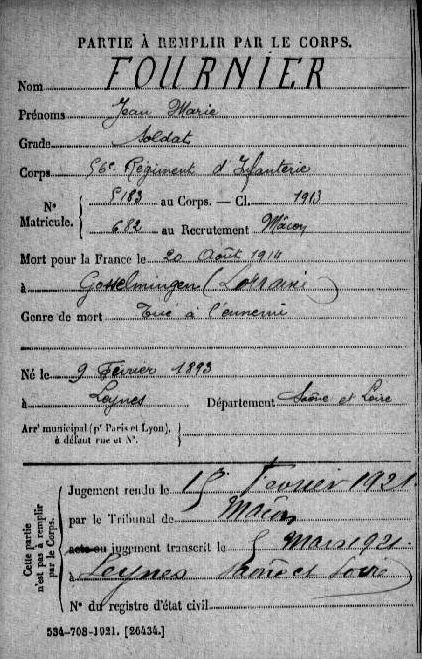 PARTIE À REMPLIR PAR LE CORPS.
Nom FOURNIER
Prénoms Jean Marie
Grade Soldat
Corps 56e Régiment d'Infanterie
N° Matricule. { 5183 au Corps. — Cl. 1913
682 au Recrutement Mâcon
Mort pour la France le 20 Août 1914
à Gosselmingen (Lorraine)
Genre de mort Tué à l'ennemi
Né le 9 Février 1893
à Leynes Département Saône et Loire
Arrt municipal (pr Paris et Lyon), à défaut rue et N°. }
Cette partie n'est pas à remplir par le Corps.
Jugement rendu le 15 Février 1921
par le Tribunal de Mâcon
acte ou jugement transcrit le 5 Mars 1921
à Leynes Saône et Loire
N° du registre d'état civil
534-708-1921. [26434.]